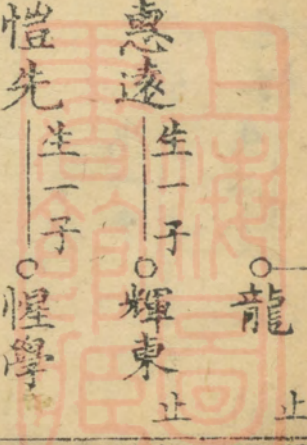 龍
止
惠遠
生一子
輝東
止
愷先
生一子
惺學